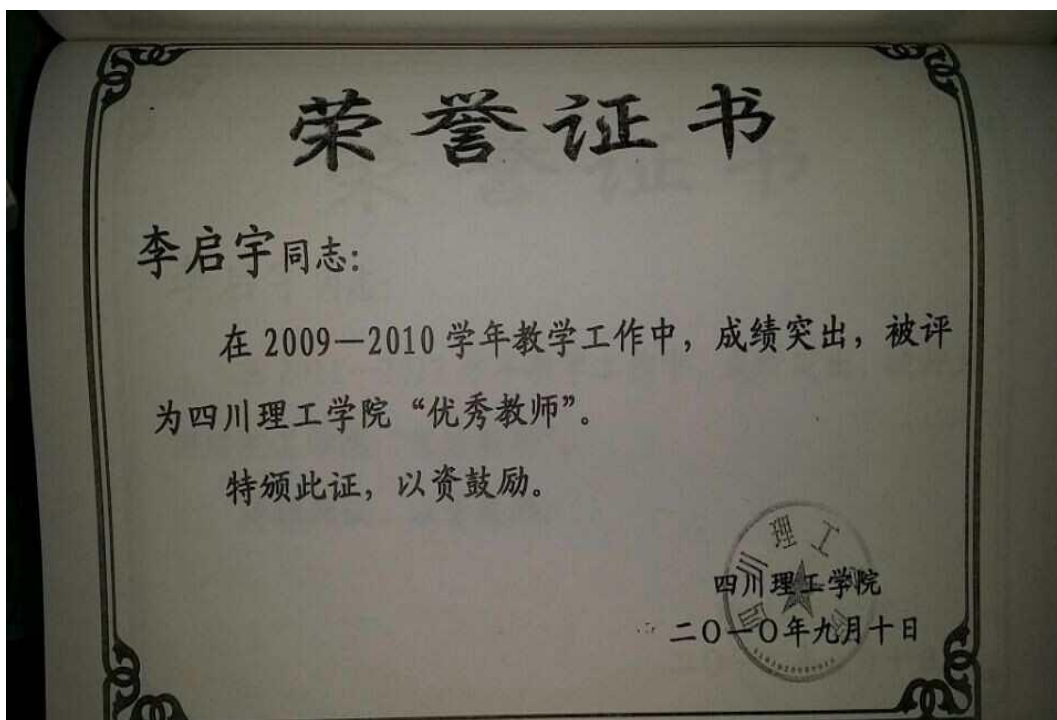 荣誉证书
李启宇同志：
在2009—2010学年教学工作中，成绩突出，被评
为四川理工学院“优秀教师”。
特颁此证，以资鼓励。
四川理工学院
二〇一〇年九月十日
四川理工学院